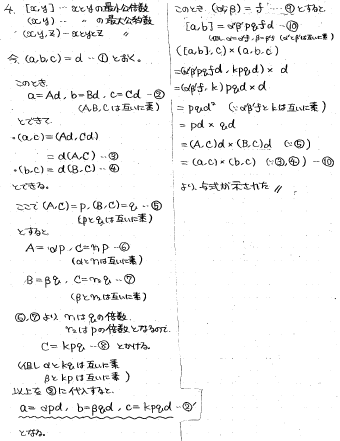 4. [x,y] … xとyの最小公倍数
(x,y) … 〃 の最大公約数
(x,y,z) … xとyとz 〃
今 (a,b,c) = d …① とおく。
このとき
a = Ad, b = Bd, c = Cd …②
(A,B,Cは互いに素)
とできて
・(a,c) = (Ad, Cd)
= d(A,C) …③
・(b,c) = d(B,C) …④
とできる。
ここで (A,C) = p, (B,C) = q …⑤
(pとqは互いに素)
とすると
A = αp, C = mp …⑥
(αとmは互いに素)
B = βq, C = nq …⑦
(βとnは互いに素)
⑥,⑦より mはqの倍数,
nはpの倍数となるので,
C = kpq …⑧ とかける。
(但し αとkqは互いに素
βとkpは互いに素)
以上を②に代入すると,
a = αpd, b = βqd, c = kpqd …②'
となる。
このとき, (α,β) = f …⑨とすると
[a,b] = α'β'pqfd …⑩
(但し α=α'f, β=β'f (α'とβ'は互いに素))
([a,b],c) × (a,b,c)
= (α'β'pqfd, kpqd) × d
= (α'β'f, k) pqd × d
= pqd² (∵ α'β'fとkは互いに素)
= pd × qd
= (A,C)d × (B,C)d (∵⑤)
= (a,c) × (b,c) (∵③,④) …⑩
より 与式が示された 〃